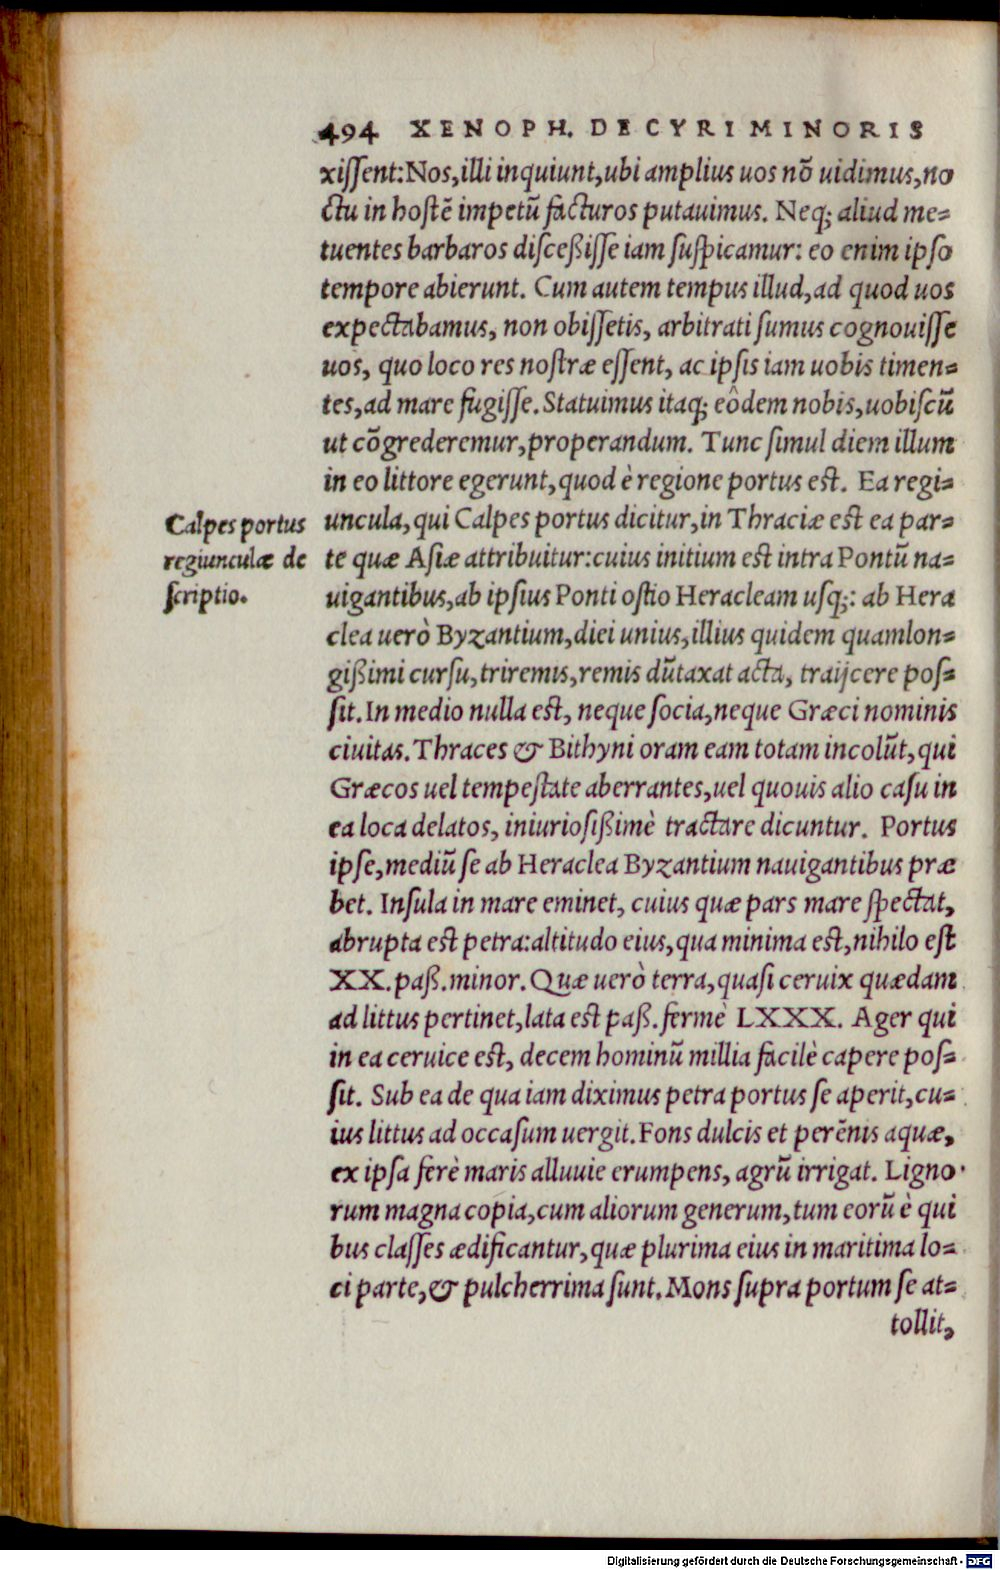 494 XENOPH. DE CYRI MINORIS
xissent: Nos, illi inquiunt, ubi amplius uos nõ uidimus, no
ctu in hostẽ impetũ facturos putauimus. Neq; aliud me=
tuentes barbaros disceßisse iam suspicamur: eo enim ipso
tempore abierunt. Cum autem tempus illud, ad quod uos
expectabamus, non obissetis, arbitrati sumus cognouisse
uos, quo loco res nostræ essent, ac ipsis iam uobis timen=
tes, ad mare fugisse. Statuimus itaq; eôdem nobis, uobiscũ
ut cõgrederemur, properandum. Tunc simul diem illum
in eo littore egerunt, quod è regione portus est. Ea regi=
Calpes portus
regiunculæ de
scriptio.
uncula, qui Calpes portus dicitur, in Thraciæ est ea par=
te quæ Asiæ attribuitur: cuius initium est intra Pontũ na=
uigantibus, ab ipsius Ponti ostio Heracleam usq;: ab Hera
clea uerò Byzantium, diei unius, illius quidem quamlon=
gißimi cursu, triremis, remis dũtaxat acta, traijcere pos=
sit. In medio nulla est, neque socia, neque Græci nominis
ciuitas. Thraces & Bithyni oram eam totam incolũt, qui
Græcos uel tempestate aberrantes, uel quouis alio casu in
ea loca delatos, iniuriosißimè tractare dicuntur. Portus
ipse, mediũ se ab Heraclea Byzantium nauigantibus præ
bet. Insula in mare eminet, cuius quæ pars mare spectat,
abrupta est petra: altitudo eius, qua minima est, nihilo est
XX. paß. minor. Quæ uerò terra, quasi ceruix quædam
ad littus pertinet, lata est paß. fermè LXXX. Ager qui
in ea ceruice est, decem hominũ millia facilè capere pos=
sit. Sub ea de qua iam diximus petra portus se aperit, cu=
ius littus ad occasum uergit. Fons dulcis et perẽnis aquæ,
ex ipsa ferè maris alluuie erumpens, agrũ irrigat. Ligno
rum magna copia, cum aliorum generum, tum eorũ è qui
bus classes ædificantur, quæ plurima eius in maritima lo=
ci parte, & pulcherrima sunt. Mons supra portum se at=
tollit,
Digitalisierung gefördert durch die Deutsche Forschungsgemeinschaft - DFG